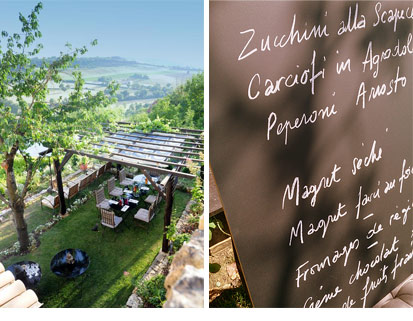 Zucchini alla Scapece
Carciofi in Agrodol
Peperoni Arrosto
Magret séché
Magret farci au fo
Fromages de régi
Crème chocolat
de fruit